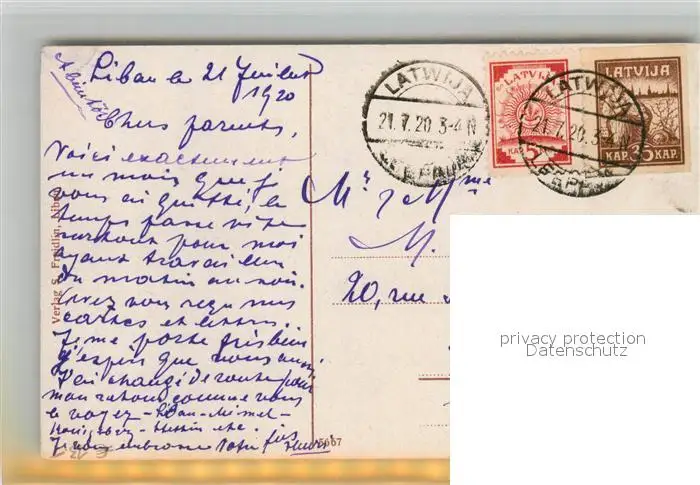 Liban le 21 Juillet
1920
Chers parents,
Voici exactement
un mois que je
vous ai quitté, le
temps passe vite
surtout pour moi
ayant travail
du matin au soir.
Avez vous reçu mes
cartes et lettres.
Je me porte très bien
j'espère que vous aussi.
J'ai changé de route pour
mon retour comme vous
le voyez - Liban - Memel -
Stettin etc.
Je vous embrasse votre fils
Verlag S. Freidlin, Libau
LATWIJA
21.7.20 3-4 N
LEEPAJA
LATVIJA
5 KAP.
LATWIJA
21.7.20.3-4 N
LEEPAJA
LATVIJA
KAP. 35 KAP.
Mr & Mme
M.
20, rue
privacy protection
Datenschutz